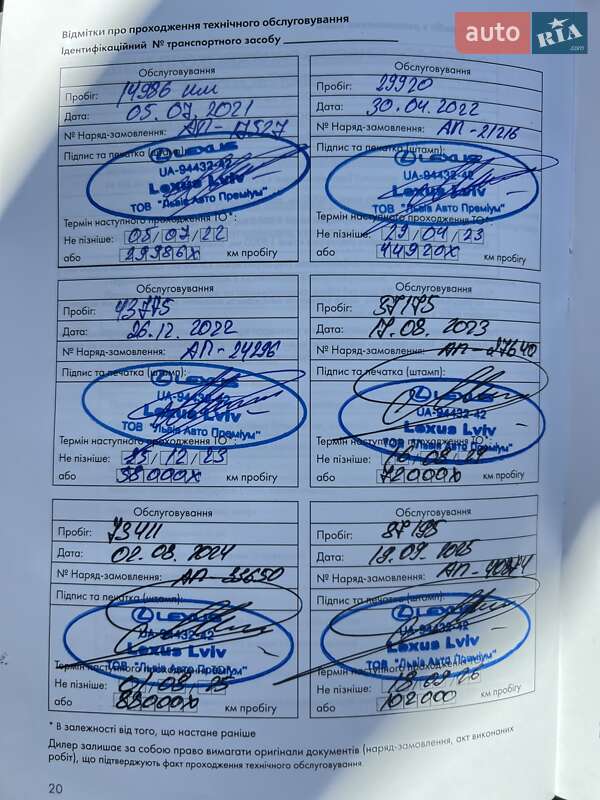 Відмітки про проходження технічного обслуговування
Ідентифікаційний № транспортного засобу
auto RIA .com
Обслуговування
Пробіг: 14986 км
Дата: 05.07.2021
№ Наряд-замовлення: АП-17527
Підпис та печатка (штамп):
LEXUS
UA-94432-42
Lexus Lviv
ТОВ "Львів Авто Преміум"
Термін наступного проходження ТО*:
Не пізніше: 05/07/22
або 29986х км пробігу
Обслуговування
Пробіг: 29920
Дата: 30.04.2022
№ Наряд-замовлення: АП-21216
Підпис та печатка (штамп):
LEXUS
UA-94432-42
Lexus Lviv
ТОВ "Львів Авто Преміум"
Термін наступного проходження ТО*:
Не пізніше: 29/04/23
або 44920х км пробігу
Обслуговування
Пробіг: 43775
Дата: 26.12.2022
№ Наряд-замовлення: АП-24296
Підпис та печатка (штамп):
LEXUS
UA-94432-42
Lexus Lviv
ТОВ "Львів Авто Преміум"
Термін наступного проходження ТО*:
Не пізніше: 25/12/23
або 58000х км пробігу
Обслуговування
Пробіг: 57175
Дата: 17.08.2023
№ Наряд-замовлення: АП-27640
Підпис та печатка (штамп):
LEXUS
UA-94432-42
Lexus Lviv
ТОВ "Львів Авто Преміум"
Термін наступного проходження ТО*:
Не пізніше: 16/08/24
або 72000х км пробігу
Обслуговування
Пробіг: 73411
Дата: 02.08.2024
№ Наряд-замовлення: АП-33650
Підпис та печатка (штамп):
LEXUS
UA-94432-42
Lexus Lviv
ТОВ "Львів Авто Преміум"
Термін наступного проходження ТО*:
Не пізніше: 01/08/25
або 88000х км пробігу
Обслуговування
Пробіг: 87195
Дата: 19.09.2025
№ Наряд-замовлення:
Підпис та печатка (штамп):
LEXUS
UA-94432-42
Lexus Lviv
ТОВ "Львів Авто Преміум"
Термін наступного проходження ТО*:
Не пізніше: 18/09/26
або 102000 км пробігу
* В залежності від того, що настане раніше
Дилер залишає за собою право вимагати оригінали документів (наряд-замовлення, акт виконаних
робіт), що підтверджують факт проходження технічного обслуговування.
20